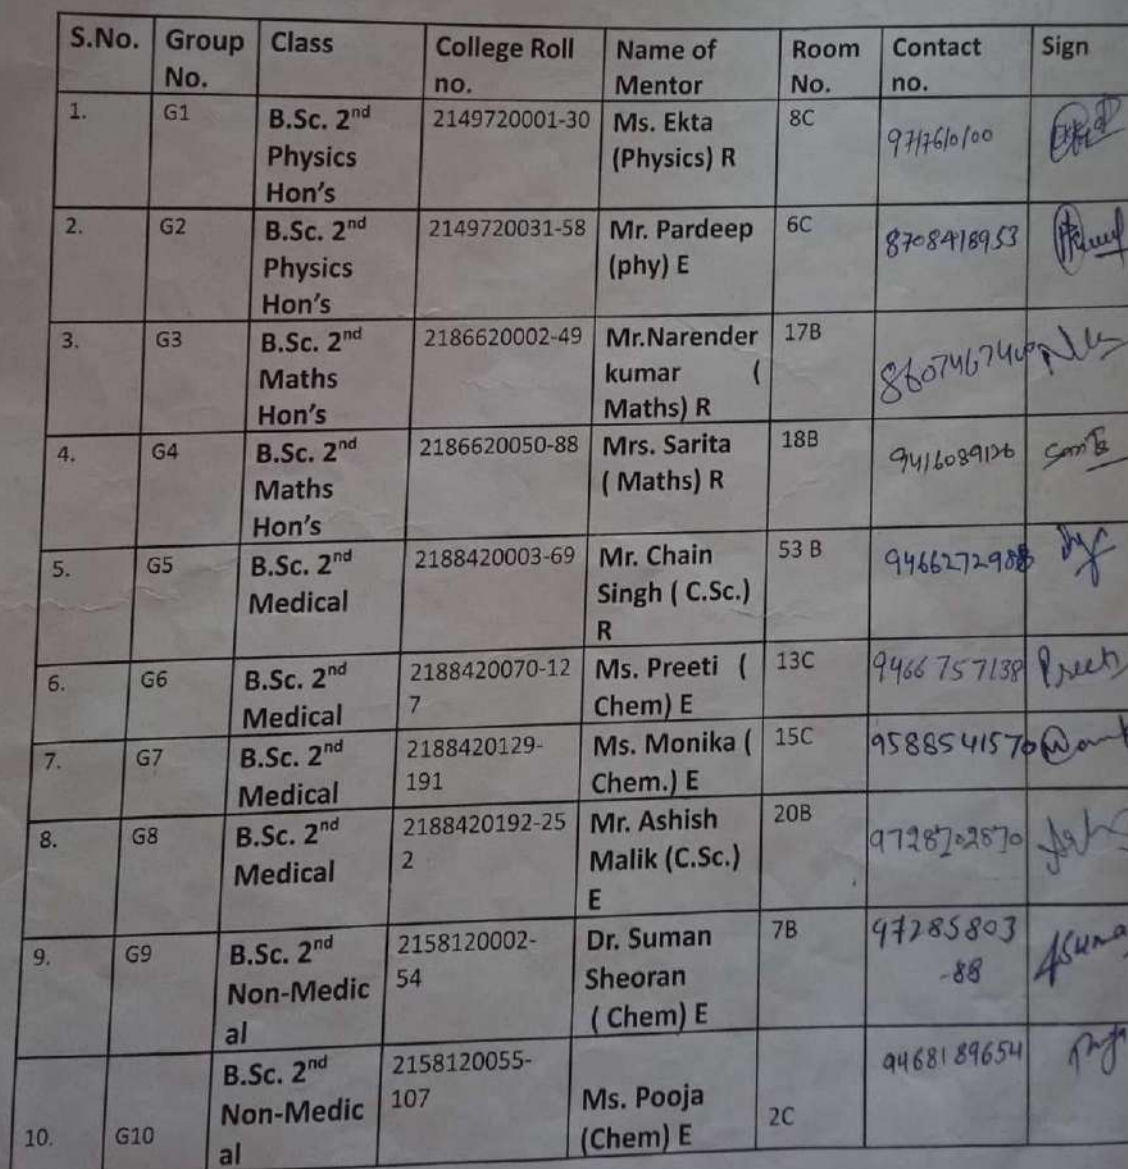 S.No. Group No. Class College Roll no. Name of Mentor Room No. Contact no. Sign
1. G1 B.Sc. 2nd Physics Hon's 2149720001-30 Ms. Ekta (Physics) R 8C
2. G2 B.Sc. 2nd Physics Hon's 2149720031-58 Mr. Pardeep (phy) E 6C 8708418953
3. G3 B.Sc. 2nd Maths Hon's 2186620002-49 Mr.Narender kumar ( Maths) R 17B
4. G4 B.Sc. 2nd Maths Hon's 2186620050-88 Mrs. Sarita ( Maths) R 18B 9416089126
5. G5 B.Sc. 2nd Medical 2188420003-69 Mr. Chain Singh ( C.Sc.) R 53 B
6. G6 B.Sc. 2nd Medical 2188420070-127 Ms. Preeti ( Chem) E 13C 9466757138 Preeti
7. G7 B.Sc. 2nd Medical 2188420129-191 Ms. Monika ( Chem.) E 15C 9588541570
8. G8 B.Sc. 2nd Medical 2188420192-252 Mr. Ashish Malik (C.Sc.) E 20B
9. G9 B.Sc. 2nd Non-Medical 2158120002-54 Dr. Suman Sheoran ( Chem) E 7B 97285803-88
10. G10 B.Sc. 2nd Non-Medical 2158120055-107 Ms. Pooja (Chem) E 2C 9468189654